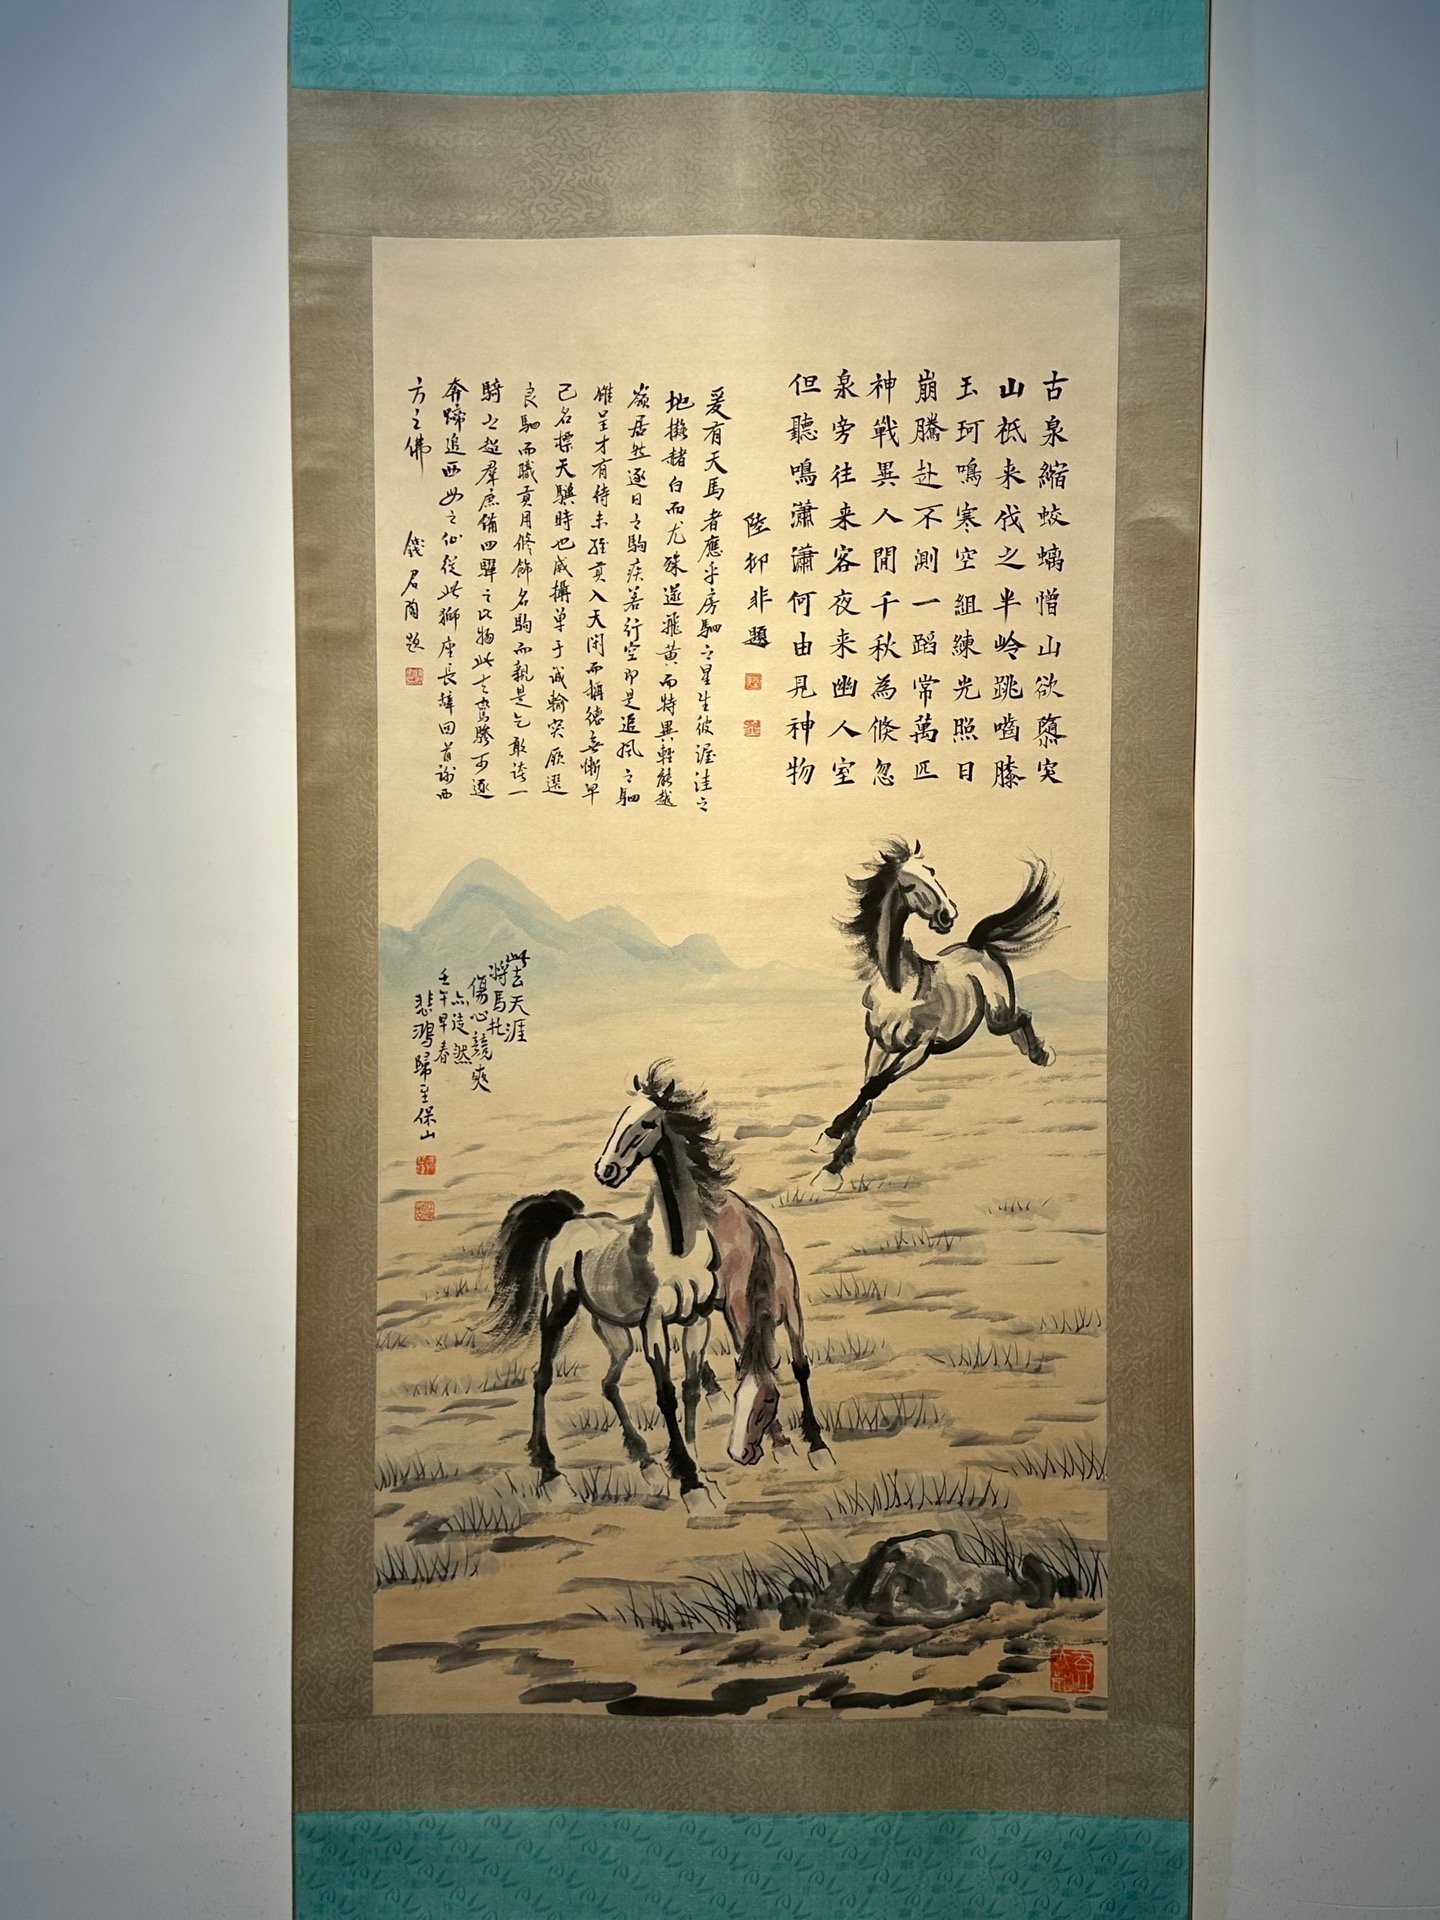 古泉縮蛟螭憎山欲墮突
山袛来伐之半岭跳嚙膝
玉珂鳴寒空組練光照日
崩騰赴不測一蹈常萬匹
神戰異人間千秋為倐忽
泉旁往来客夜来幽人室
但聽鳴瀟瀟何由見神物
陸抑非題
爰有天馬者應乎房駟之星生彼渥洼之
地擬赭白而尤殊遂飛黄而特異輕能越
嶺居然逐日之駒疾若行空即是追風之駟
雖呈才有待未經貢入天閑而稱德無慚早
已名標天驥時也威攝單于誠輸突厥選
良駟而職貢用修飾名駒而親是乞敢誇一
騎之超羣庶備四驛之以物此去鸞驂可逐
奔蹄追西母之仙從此獅座長辭回首謝西
方之佛
錢君匋題
此去天涯
將焉托
傷心競爽
亦徒然
壬午早春
悲鴻歸至保山